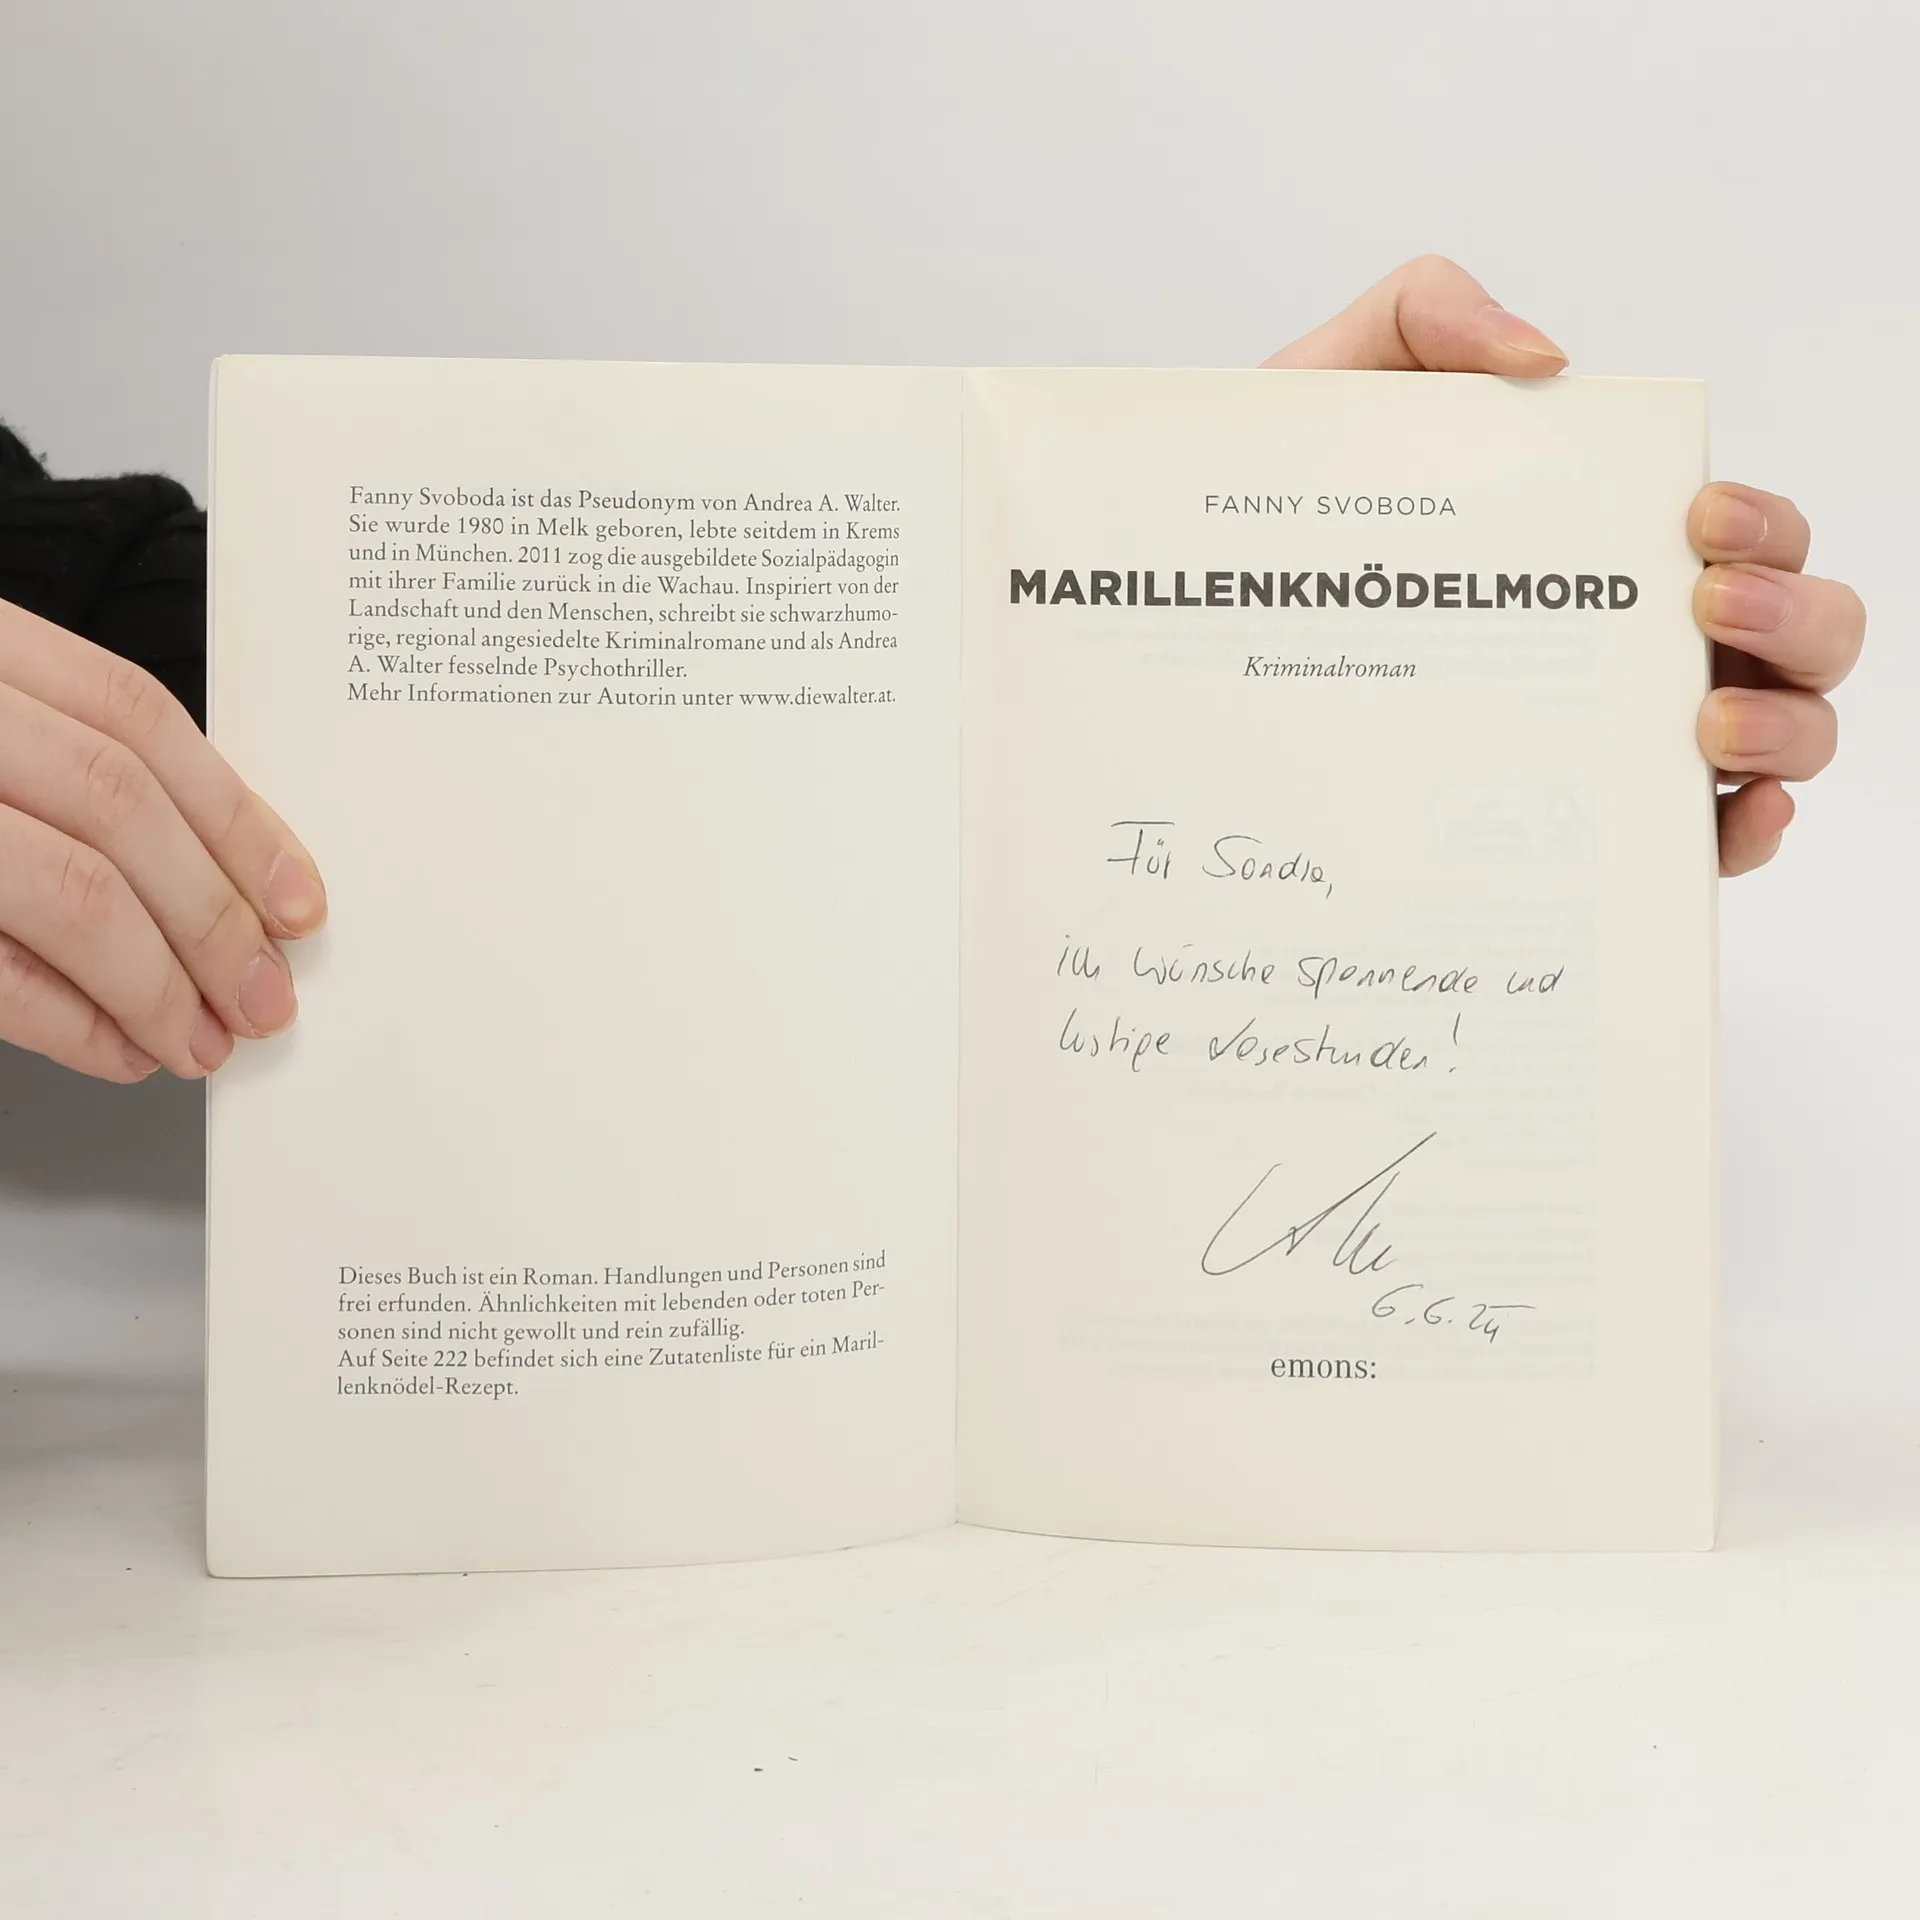 Fanny Svoboda ist das Pseudonym von Andrea A. Walter.
Sie wurde 1980 in Melk geboren, lebte seitdem in Krems
und in München. 2011 zog die ausgebildete Sozialpädagogin
mit ihrer Familie zurück in die Wachau. Inspiriert von der
Landschaft und den Menschen, schreibt sie schwarzhumo-
rige, regional angesiedelte Kriminalromane und als Andrea
A. Walter fesselnde Psychothriller.
Mehr Informationen zur Autorin unter www.diewalter.at.
Dieses Buch ist ein Roman. Handlungen und Personen sind
frei erfunden. Ähnlichkeiten mit lebenden oder toten Per-
sonen sind nicht gewollt und rein zufällig.
Auf Seite 222 befindet sich eine Zutatenliste für ein Maril-
lenknödel-Rezept.
FANNY SVOBODA
MARILLENKNÖDELMORD
Kriminalroman
Für Sandra,
ich wünsche spannende und
lustige Lesestunden!
6.6.24
emons: